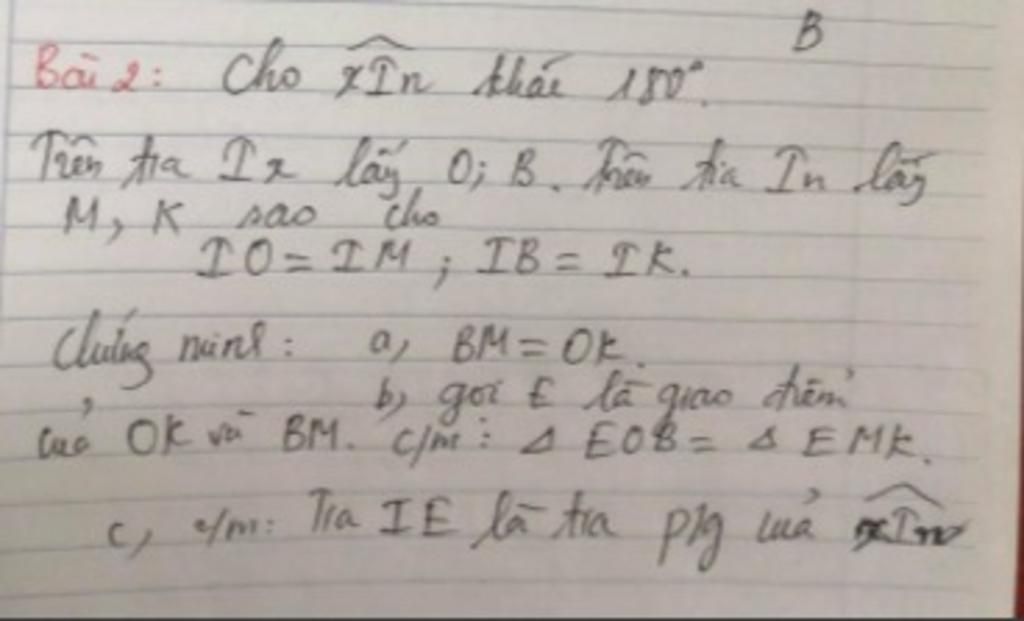 B
Bài 2: Cho xIn khác 180°.
Trên tia Ix lấy O; B. Trên tia In lấy
M, K sao cho
IO = IM ; IB = IK.
Chứng minh: a, BM = OK.
b, gọi E là giao điểm
của OK và BM. c/m: Δ EOB = Δ EMK.
c, c/m: Tia IE là tia p/g của xIn